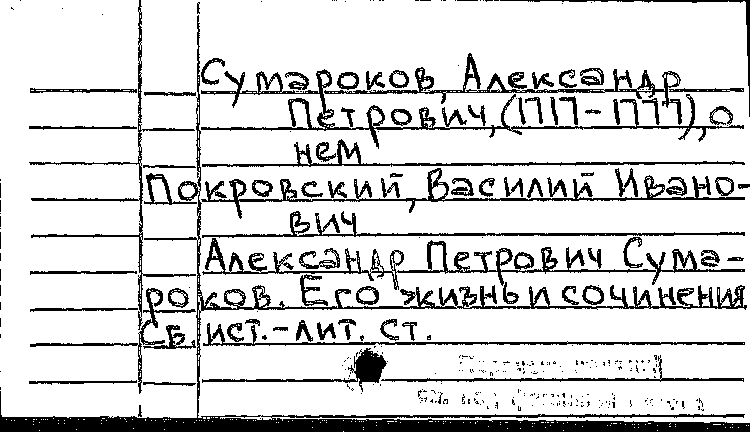 Сумароков, Александр
Петрович, (1717-1777), о
нем
Покровский, Василий Ивано-
вич
Александр Петрович Сума-
роков. Его жизнь и сочинения
Сб. ист.-лит. ст.